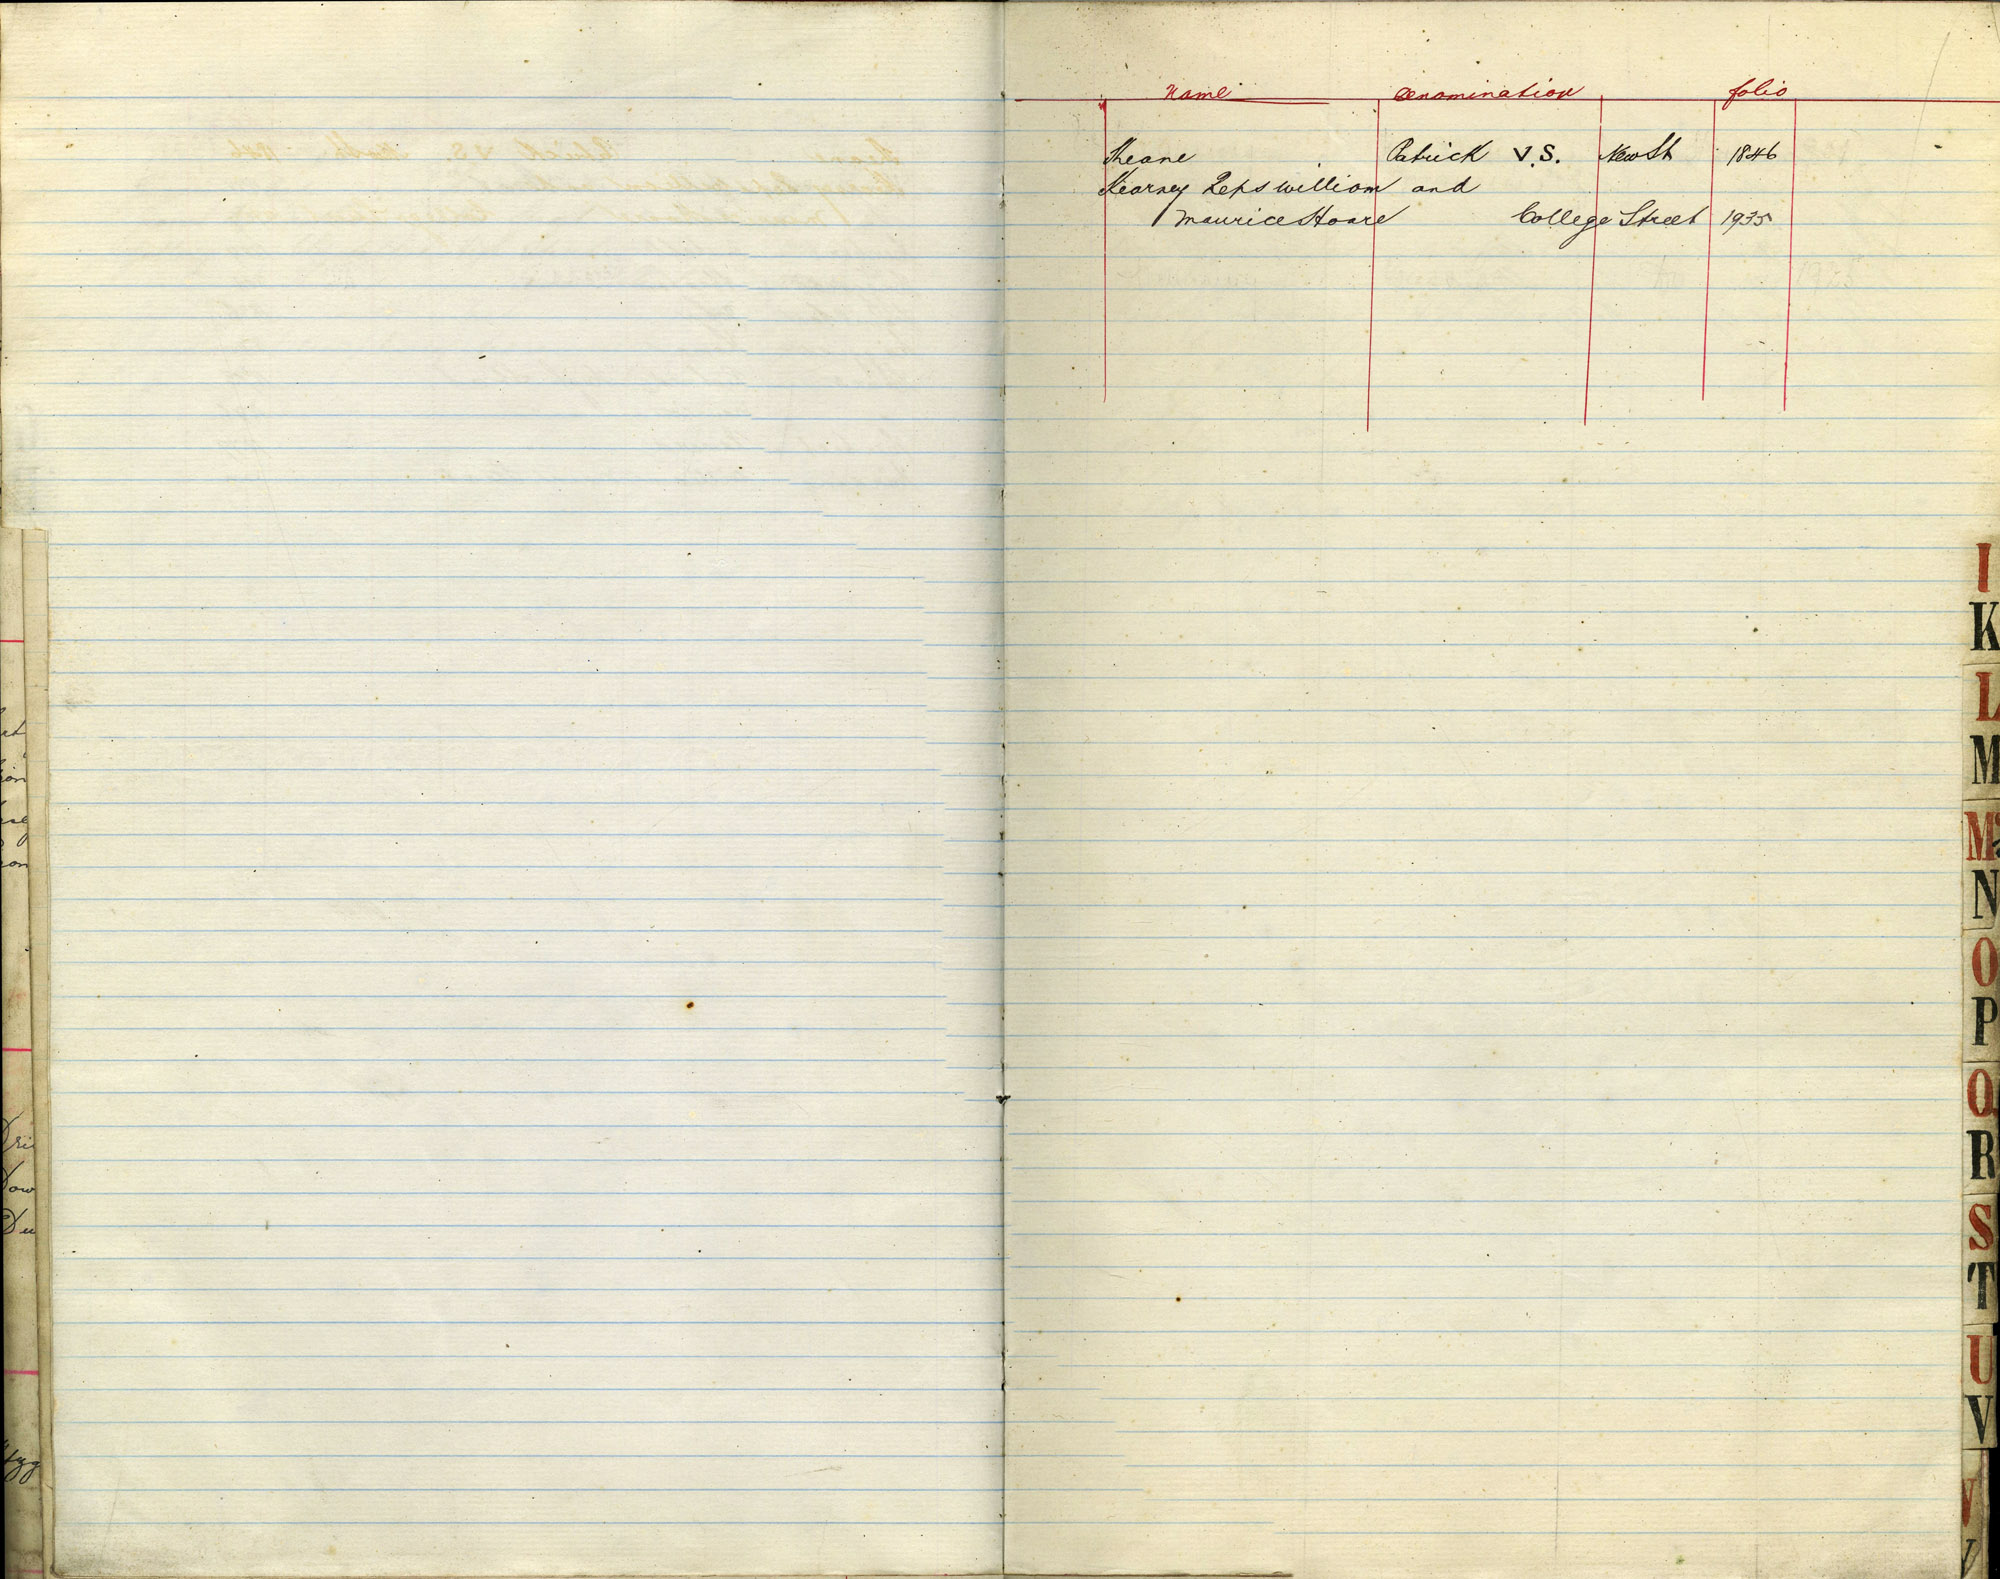 Name Denomination folio
Keane Patrick V.S. New St 1846
Kearney Reps William and
Maurice Hoare College Street 1935
I
K
L
M
Mc
N
O
P
Q
R
S
T
U
V
Dri
Dow
Du